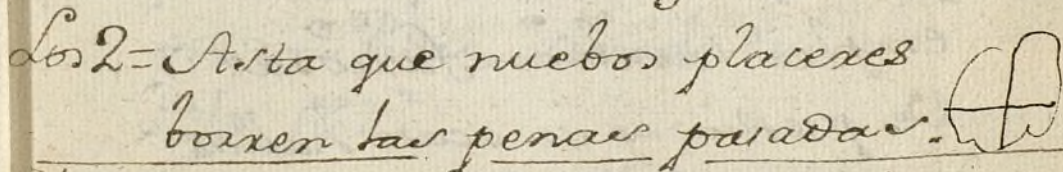 Los 2= Asta que nuebos placeres
borren las penas pasadas.